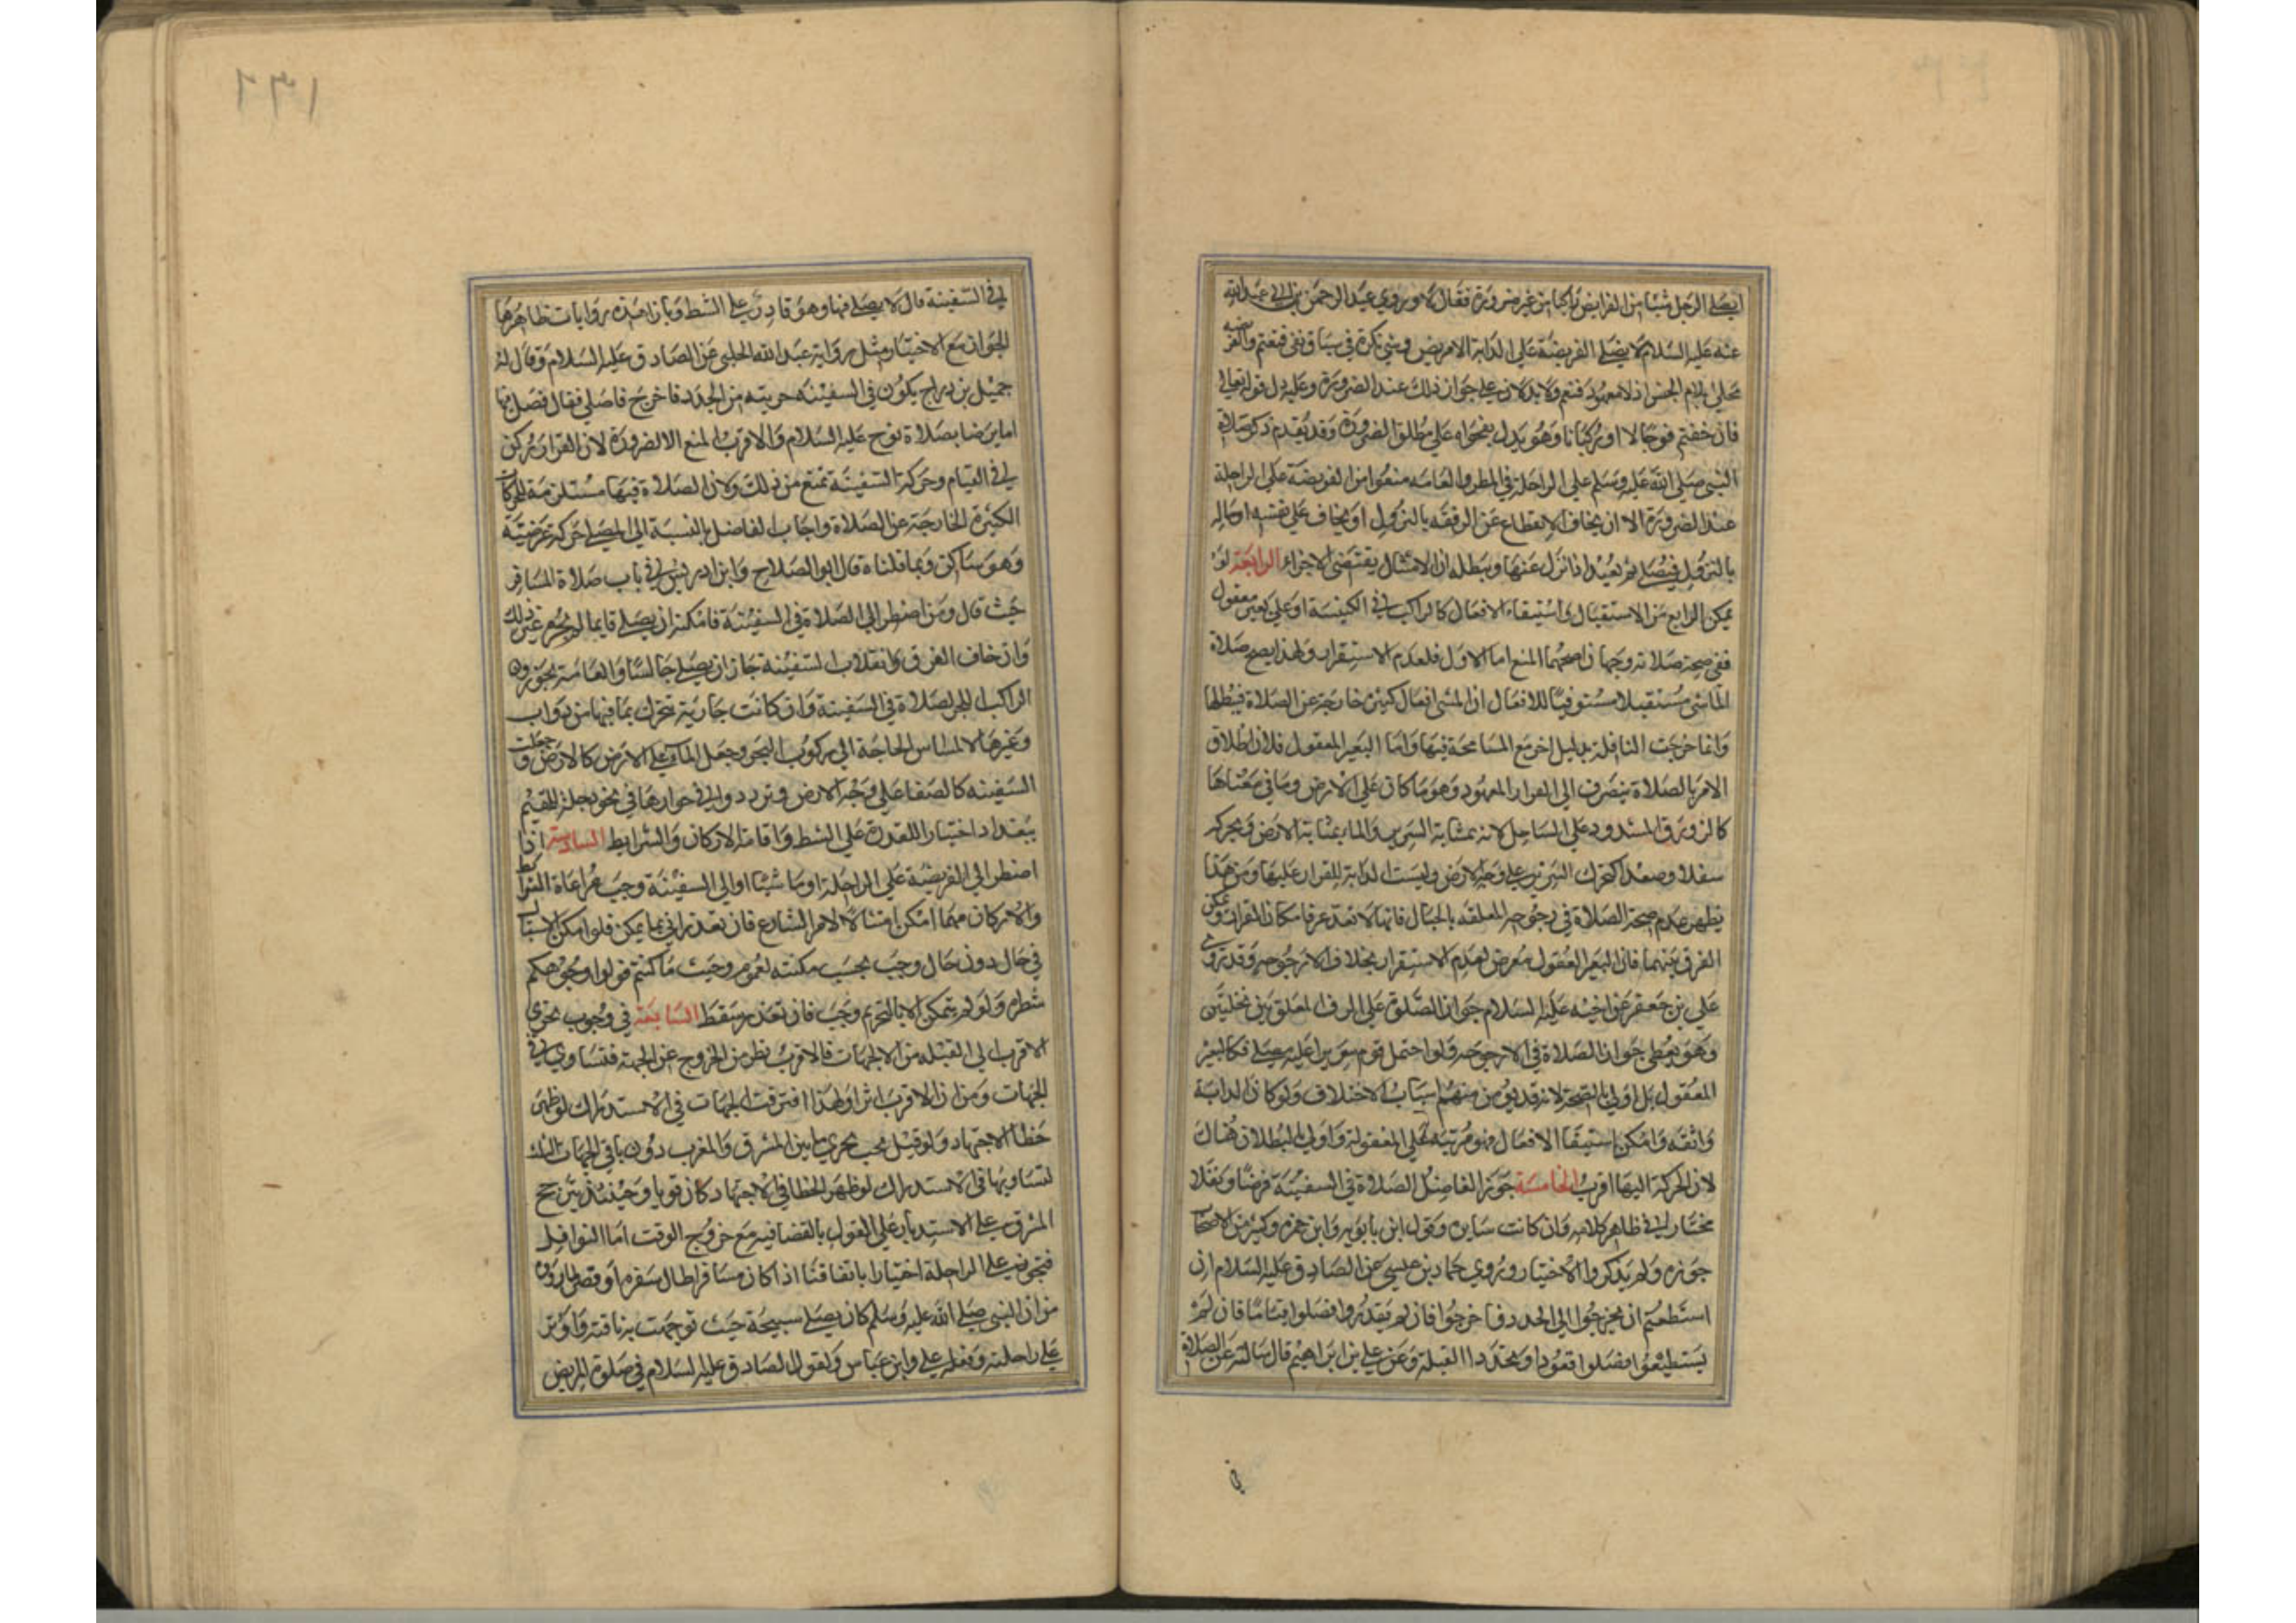 ايصلي الرجل شيئا من الفرايض راكبا من غير ضرورة فقال لا وروي عبد الرحمن بن ابي عبد الله
عنه عليه السلام لا يصلي الفريضة على الدابة الا مريض وهي نكرة في سياق نفي فيعم والفريضة
محلى بلام الجنس اذ لا معهود فتعم ولا بد لان على جواز ذلك عند الضرورة وعليه دل قوله تعالى
فان خفتم فرجالا او ركبانا وهو يدل بفحواه على مطلق الضرورة وقد تقدم ذكر صلاة
النبي صلى الله عليه وسلم على الراحلة في المطر والعامه منعوا من الفريضة على الراحلة
عند الضرورة الا ان يخاف الانقطاع عن الرفقه بالنزول او يخاف على نفسه او ماله
بالنزول فيصلي ثم يعيد اذا نزل عنها ويبطله ان الامتثال يقتضي الاجزاء الرابعة لو
يمكن الراكب من الاستقبال واستيفاء الافعال كالراكب في الكنيسة او على بعير معقول
ففي صحة صلاته وجهان اصحهما المنع اما الاول فلعدم الاستقرار ولهذا يصح صلاة
الماشي مستقبلا مستوفيا للافعال ان المشي افعال كثيرة خارجة عن الصلاة فيبطلها
وانما خرجت النافلة بدليل اخر مع المسامحة فيها واما البعير المعقول فلان اطلاق
الامر بالصلاة ينصرف الى القرار المعهود وهو ما كان على الارض وما في معناها
كالزورق المشدود على الساحل لانه بمثابة السرير والماء بمثابة الارض وتحركه
سفلا وصعدا كتحرك السرير على وجه الارض وليست الدابة للقرار عليها ومن هذا
يظهر عدم صحة الصلاة في ارجوحه المعلقه بالحبال فانها لا تعد عرفا مكان القرار ويمكن
الفرق بينهما فان البعير المعقول معرض لعدم الاستقرار بخلاف الارجوحه وقد روى
علي بن جعفر عن اخيه عليه السلام جواز الصلوة على الرف المعلق بين نخلتين
وهو يعطي جواز الصلاة في الارجوحه ولو احتمل قوم سريرا عليه مصلي فكالبعير
المعقول بل اولى بالصحة لانه قد يؤمن منهم اسباب الاختلاف ولو كان الدابة
واثقه وامكن استيفا الافعال فهو مرتبة على المعقولة واولى بالبطلان هناك
لان الحركة اليها اقرب الخامسة جوز الفاضل الصلاة في السفينة فرضا ونفلا
مختارا في ظاهر كلامه وان كانت سايره وقول ابن بابويه وابن حمزه وكثير من الاصحاب
جوزه ولم يذكروا الاختيار وروي حماد بن عيسى عن الصادق عليه السلام ان
استطعتم ان تخرجوا الى الجدد فاخرجوا فان لم يقدروا فصلوا قياما فان لم
يستطيعوا فصلوا قعودا وتحروا القبلة وعن علي بن ابراهيم قال سالته عن الصلاة
في
في السفينة قال لا يصلي فيها وهو قادر على الشط وبازاء هذه روايات ظاهرها
الجواز مع الاختيار مثل رواية عبد الله الحلبي عن الصادق عليه السلام وقال له
جميل بن دراج يكون في السفينه قريبه من الجدد فاخرج فاصلي فقال فصل فيها
اما ترضا بصلاة نوح عليه السلام والاقرب المنع الا لضرورة لان القرار ركن
في القيام وحركة السفينة تمنع من ذلك ولان الصلاة فيها مستلزمة للحركات
الكثيرة الخارجة عن الصلاة واجاب الفاضل بالنسبة الى المصلي حركة عرضية
وهو ساكن وبما قلناه قال ابو الصلاح وابن ادريس في باب صلاة المسافر
حيث قال ومن اضطر الى الصلاة في السفينة فامكنه ان يصلي قايما لم يجز غير ذلك
وان خاف الغرق وانقلاب السفينة جاز ان يصلي جالسا والعامة يجوزون
الراكب البحر الصلاة في السفينة وان كانت جارية تتحرك بما فيها من دواب
وغيرها لا لمساس الحاجة الى ركوب البحر وجعل الماء على الارض كالارض وجعلت
السفينه كالصفا على وجه الارض وترددوا في جوازها في نحو دجلة للمقيم
ببغداد اختيارا للقدرة على الشط واقامة الاركان والشرايط السادسة اذا
اضطر الى الفريضة على الراحلة او ماشيا او الى السفينة وجب مراعاة الشرايط
والاركان مهما امكن امتثالا لامر الشارع فان تعذر اتى بما يمكن فلو امكن الاستقبال
في حال دون حال وجب بحسب مكنته لعموم وحيث ما كنتم فولوا وجوهكم
شطره ولو لم يتمكن الا بالتحريم وجب فان تعذر سقط السابعة في وجوب تحري
الاقرب الى القبله من الجهات فالاقرب نظر من الخروج عن الجهة فتتساوي في
الجهات ومن ان الاقرب اثرا ولهذا افترقت الجهات في الاستدراك لو ظهر
خطا الاجتهاد ولو قيل يجب تحري ما بين المشرق والمغرب دون باقي الجهات
لتساويها في الاستدراك لو ظهر الخطا في الاجتهاد كان قويا وحينئذ يترجح
المشرق على الاستدبار على القول بالقضا فيه مع خروج الوقت اما النوافل
فتجوز على الراحلة اختيارا باتفاقنا اذا كان مسافرا طال سفره او قصر لما روي
من ان النبي صلى الله عليه وسلم كان يصلي سبيحة حيث توجهت به ناقته واوتر
على راحلته وفعله علي وابن عباس ولقول الصادق عليه السلام في صلوة المريض